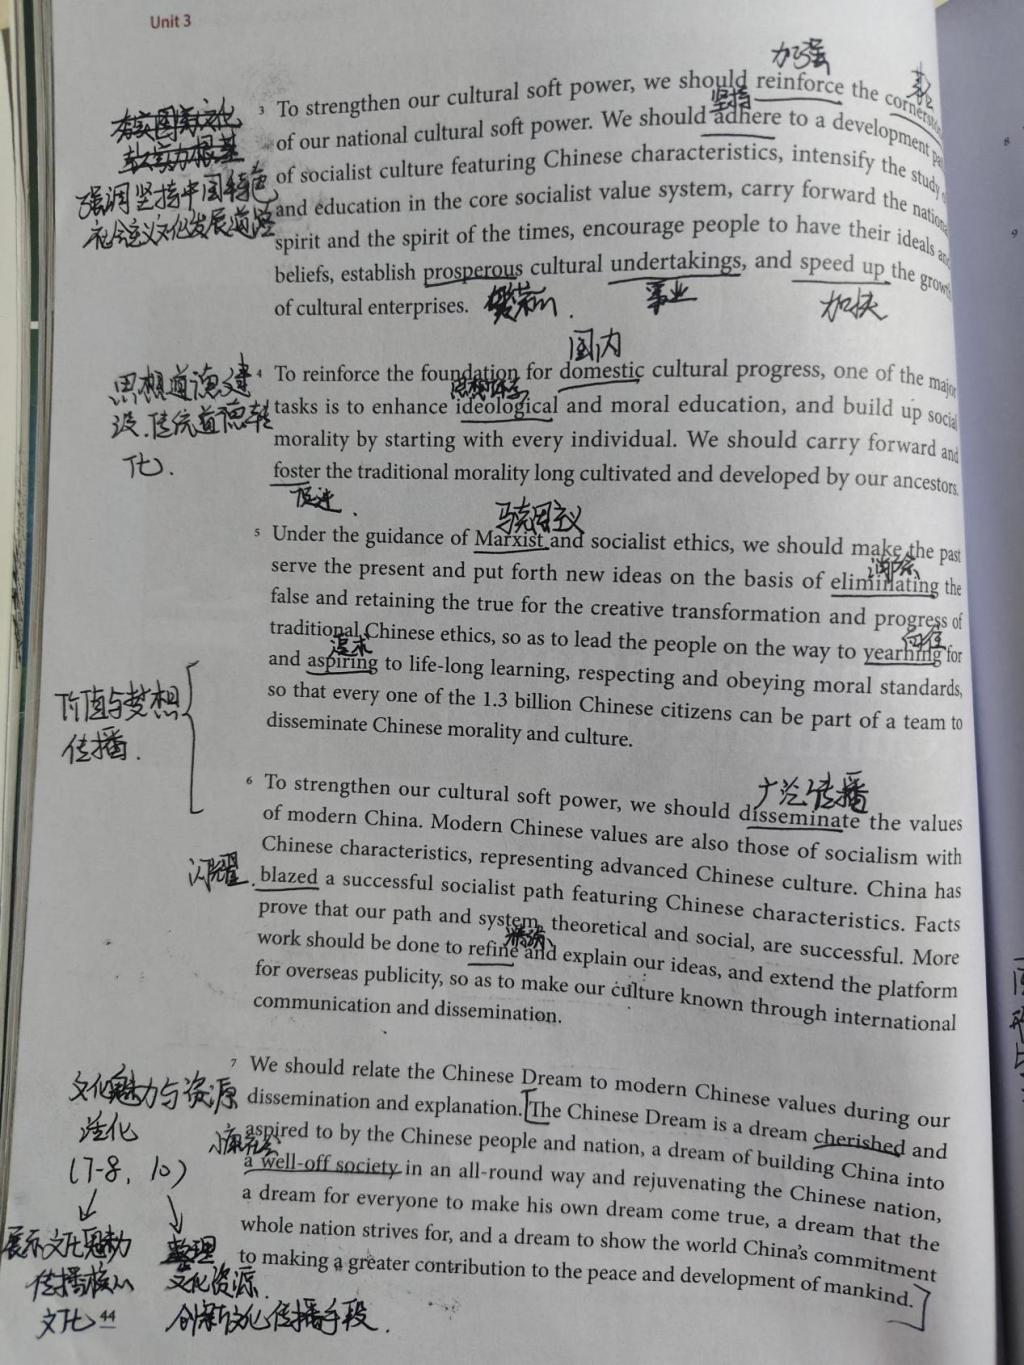 Unit 3
加强
3 To strengthen our cultural soft power, we should reinforce the
坚持
of our national cultural soft power. We should adhere to a development
强调坚持中国特色
社会主义文化发展道路
of socialist culture featuring Chinese characteristics, intensify the study
and education in the core socialist value system, carry forward the national
spirit and the spirit of the times, encourage people to have their ideals and
beliefs, establish prosperous cultural undertakings, and speed up the growth
of cultural enterprises.
事业
加快
国内
思想道德建
设、传统道德转
化.
4 To reinforce the foundation for domestic cultural progress, one of the major
tasks is to enhance ideological and moral education, and build up social
morality by starting with every individual. We should carry forward and
foster the traditional morality long cultivated and developed by our ancestors.
促进.
马克思主义
5 Under the guidance of Marxist and socialist ethics, we should make the past
消除
serve the present and put forth new ideas on the basis of eliminating the
false and retaining the true for the creative transformation and progress of
向往
traditional Chinese ethics, so as to lead the people on the way to yearning for
追求
and aspiring to life-long learning, respecting and obeying moral standards,
so that every one of the 1.3 billion Chinese citizens can be part of a team to
disseminate Chinese morality and culture.
价值与梦想
传播.
广泛传播
6 To strengthen our cultural soft power, we should disseminate the values
of modern China. Modern Chinese values are also those of socialism with
Chinese characteristics, representing advanced Chinese culture. China has
闪耀.
blazed a successful socialist path featuring Chinese characteristics. Facts
prove that our path and system, theoretical and social, are successful. More
work should be done to refine and explain our ideas, and extend the platform
for overseas publicity, so as to make our culture known through international
communication and dissemination.
文化魅力与资源
活化
(7-8, 10)
7 We should relate the Chinese Dream to modern Chinese values during our
dissemination and explanation. The Chinese Dream is a dream cherished and
aspired to by the Chinese people and nation, a dream of building China into
小康社会
a well-off society in an all-round way and rejuvenating the Chinese nation,
a dream for everyone to make his own dream come true, a dream that the
whole nation strives for, and a dream to show the world China's commitment
to making a greater contribution to the peace and development of mankind.
展示文化魅力
传播核心
文化
整理
文化资源.
创新文化传播手段.
44